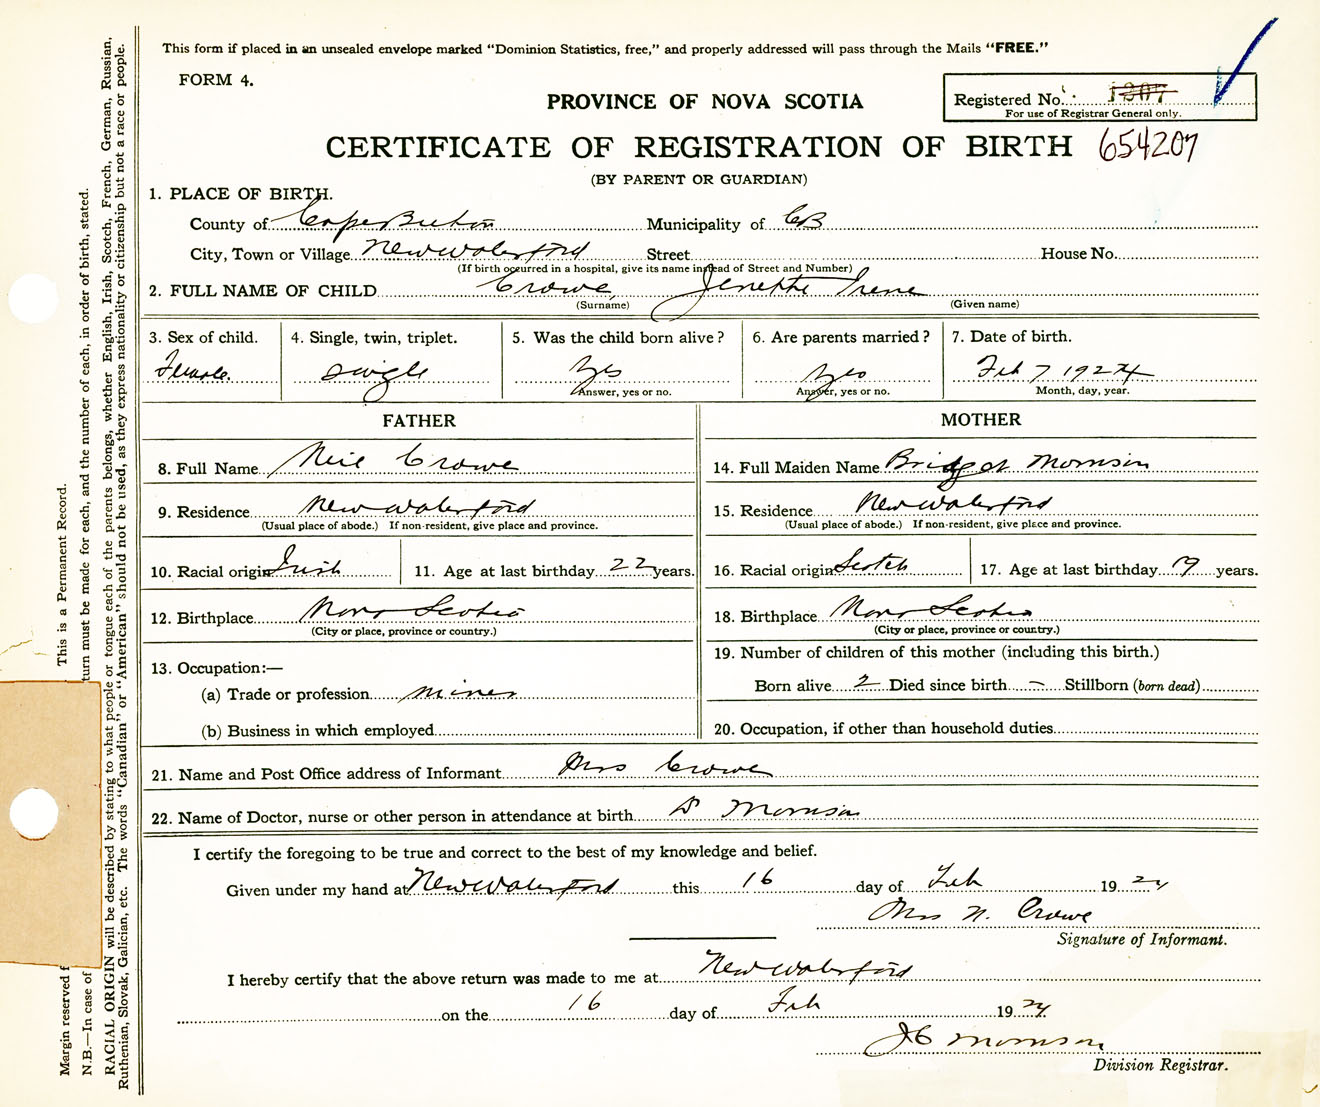 This form if placed in an unsealed envelope marked "Dominion Statistics, free," and properly addressed will pass through the Mails "FREE."
FORM 4.
PROVINCE OF NOVA SCOTIA
Registered No. 1307
For use of Registrar General only.
CERTIFICATE OF REGISTRATION OF BIRTH 654207
(BY PARENT OR GUARDIAN)
1. PLACE OF BIRTH.
County of Cape Breton Municipality of CB
City, Town or Village New Waterford Street House No.
(If birth occurred in a hospital, give its name instead of Street and Number)
2. FULL NAME OF CHILD Crowe, Jenette Irene
(Surname) (Given name)
3. Sex of child. 4. Single, twin, triplet. 5. Was the child born alive? 6. Are parents married? 7. Date of birth.
Female. single Yes yes Feb 7 1924
Answer, yes or no. Answer, yes or no. Month, day, year.
FATHER MOTHER
8. Full Name Neil Crowe 14. Full Maiden Name Bridget Morrison
9. Residence New Waterford 15. Residence New Waterford
(Usual place of abode.) If non-resident, give place and province. (Usual place of abode.) If non-resident, give place and province.
10. Racial origin Irish 11. Age at last birthday 22 years. 16. Racial origin Scotch 17. Age at last birthday 19 years.
12. Birthplace Nova Scotia 18. Birthplace Nova Scotia
(City or place, province or country.) (City or place, province or country.)
13. Occupation:— 19. Number of children of this mother (including this birth.)
(a) Trade or profession miner Born alive 2 Died since birth – Stillborn (born dead)
(b) Business in which employed 20. Occupation, if other than household duties
21. Name and Post Office address of Informant Mrs Crowe
22. Name of Doctor, nurse or other person in attendance at birth Dr Morrison
I certify the foregoing to be true and correct to the best of my knowledge and belief.
Given under my hand at New Waterford this 16 day of Feb 1924
Mrs N. Crowe
Signature of Informant.
I hereby certify that the above return was made to me at New Waterford
on the 16 day of Feb 1924
JC Morrison
Division Registrar.
Margin reserved f
This is a Permanent Record.
N.B.—In case of
turn must be made for each, and the number of each, in order of birth, stated.
RACIAL ORIGIN will be described by stating to what people or tongue each of the parents belongs, whether English, Irish, Scotch, French, German, Russian,
Ruthenian, Slovak, Galician, etc. The words "Canadian" or "American" should not be used, as they express nationality or citizenship but not a race or people.